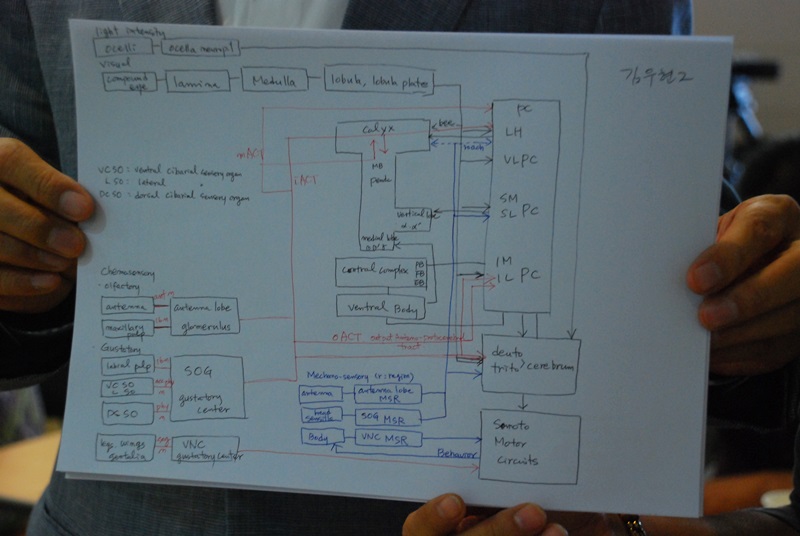 light intensity
ocelli
ocella neuropl
visual
compound eye
lamina
Medulla
lobula, lobula plates
김우현2
PC
LH
VLPC
SM
SL PC
IM
IL PC
calyx
MB
bee
mACT
iACT
VCSO : ventral cibarial sensory organ
LSO : lateral "
DCSO : dorsal cibarial sensory organ
vertical lobe
medial lobe
central complex
PB
FB
EB
Ventral Body
oACT
Chemosensory
- olfactory
antenna
maxillary palp
antenna lobe
glomerulus
Gustatory
labial pulp
VCSO
LSO
DCSO
SOG
gustatory
center
legs, wings
genitalia
VNC
gustatory center
Mechano-sensory (r: region)
antenna
antenna lobe
MSR
SOG
MSR
Body
VNC MSR
Behavior
deuto
trito
cerebrum
Motor
circuits